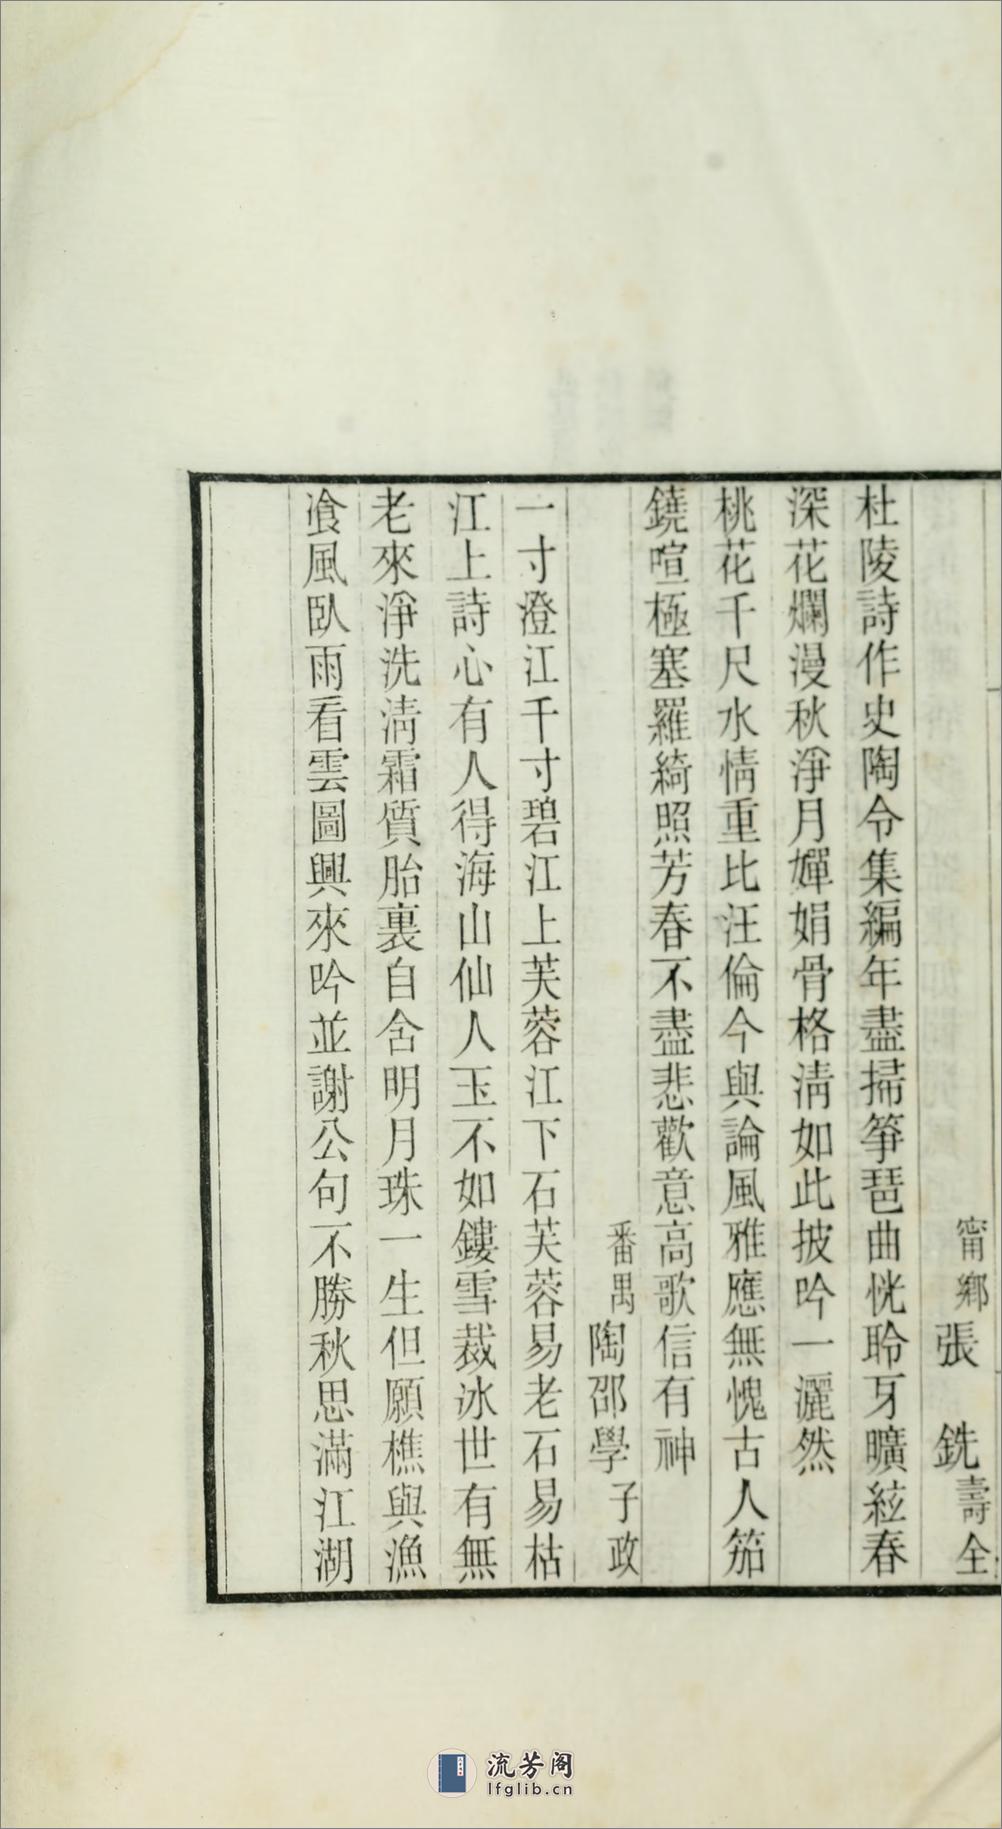 甯鄉張 銑壽全
杜陵詩作史陶令集編年盡掃箏琶曲恍聆牙曠絃春
深花爛漫秋淨月嬋娟骨格清如此披吟一灑然
桃花千尺水情重比汪倫今與論風雅應無愧古人笳
鐃喧極塞羅綺照芳春不盡悲歡意高歌信有神
番禺陶邵學子政
一寸澄江千寸碧江上芙蓉江下石芙蓉易老石易枯
江上詩心有人得海山仙人玉不如鏤雪裁冰世有無
老來淨洗清霜質胎裏自含明月珠一生但願樵與漁
飡風臥雨看雲圖興來吟並謝公句不勝秋思滿江湖
流芳阁
lfglib.cn